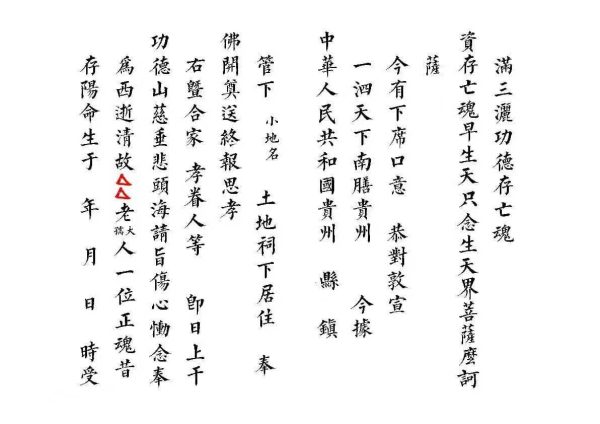 滿三灑功德存亡魂
資存亡魂早生天只念生天界菩薩麼訶
薩
今有下席口意 恭對敦宣
一泗天下南膳貴州 今據
中華人民共和國貴州 縣 鎮
管下 小地名 土地祠下居住 奉
佛開奠送終報思孝
右曁合家 孝眷人等 卽日上干
功德山慈垂悲頭海請旨傷心慟念奉
爲西逝清故△△老大孺人一位正魂昔
存陽命生于 年 月 日 時受